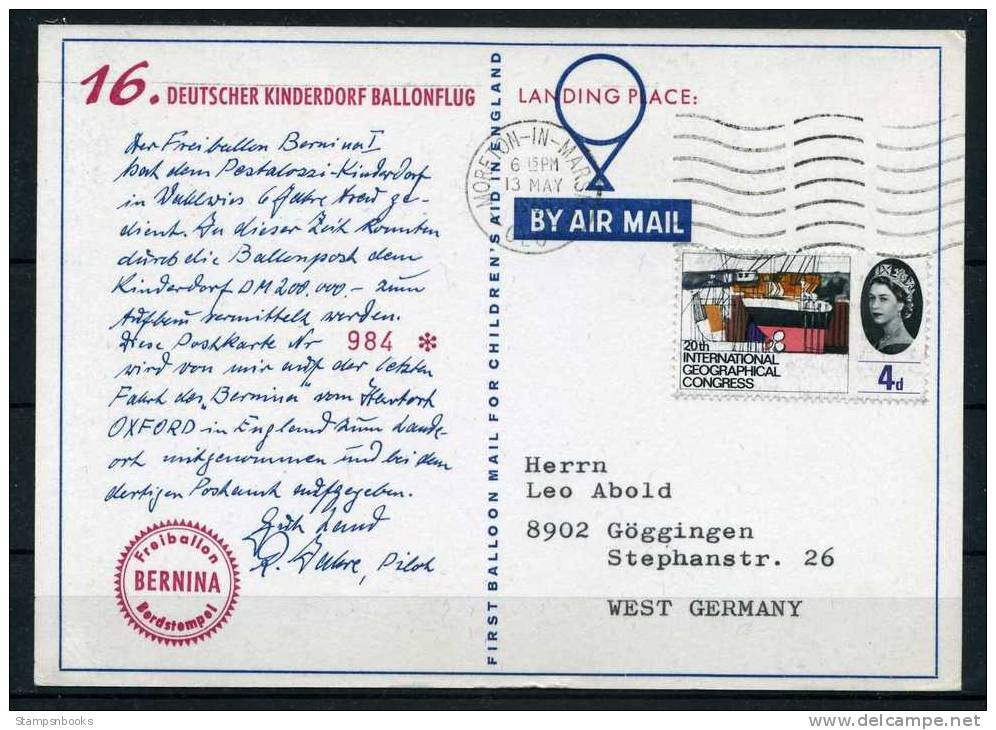 16. DEUTSCHER KINDERDORF BALLONFLUG
Der Freiballon Bernina I
hat dem Pestalozzi-Kinderdorf
in Wahlwies 6 Jahre treu ge-
dient. In dieser Zeit konnten
durch die Ballonpost dem
Kinderdorf DM 200.000.- zum
Aufbau vermittelt werden.
Diese Postkarte Nr 984 *
wird von mir auf der letzten
Fahrt des "Bernina" vom Startort
OXFORD in England zum Lande-
ort mitgenommen und bei dem
dortigen Postamt aufgegeben.
Gut Land
Pilot
Freiballon
BERNINA
Bordstempel
FIRST BALLOON MAIL FOR CHILDREN'S AID IN ENGLAND
LANDING PLACE:
MORETON-IN-MARSH
6 15 PM
13 MAY
GLO
BY AIR MAIL
20th
INTERNATIONAL
GEOGRAPHICAL
CONGRESS
4d
Herrn
Leo Abold
8902 Göggingen
Stephanstr. 26
WEST GERMANY
Stampsnbooks
delcampe.net